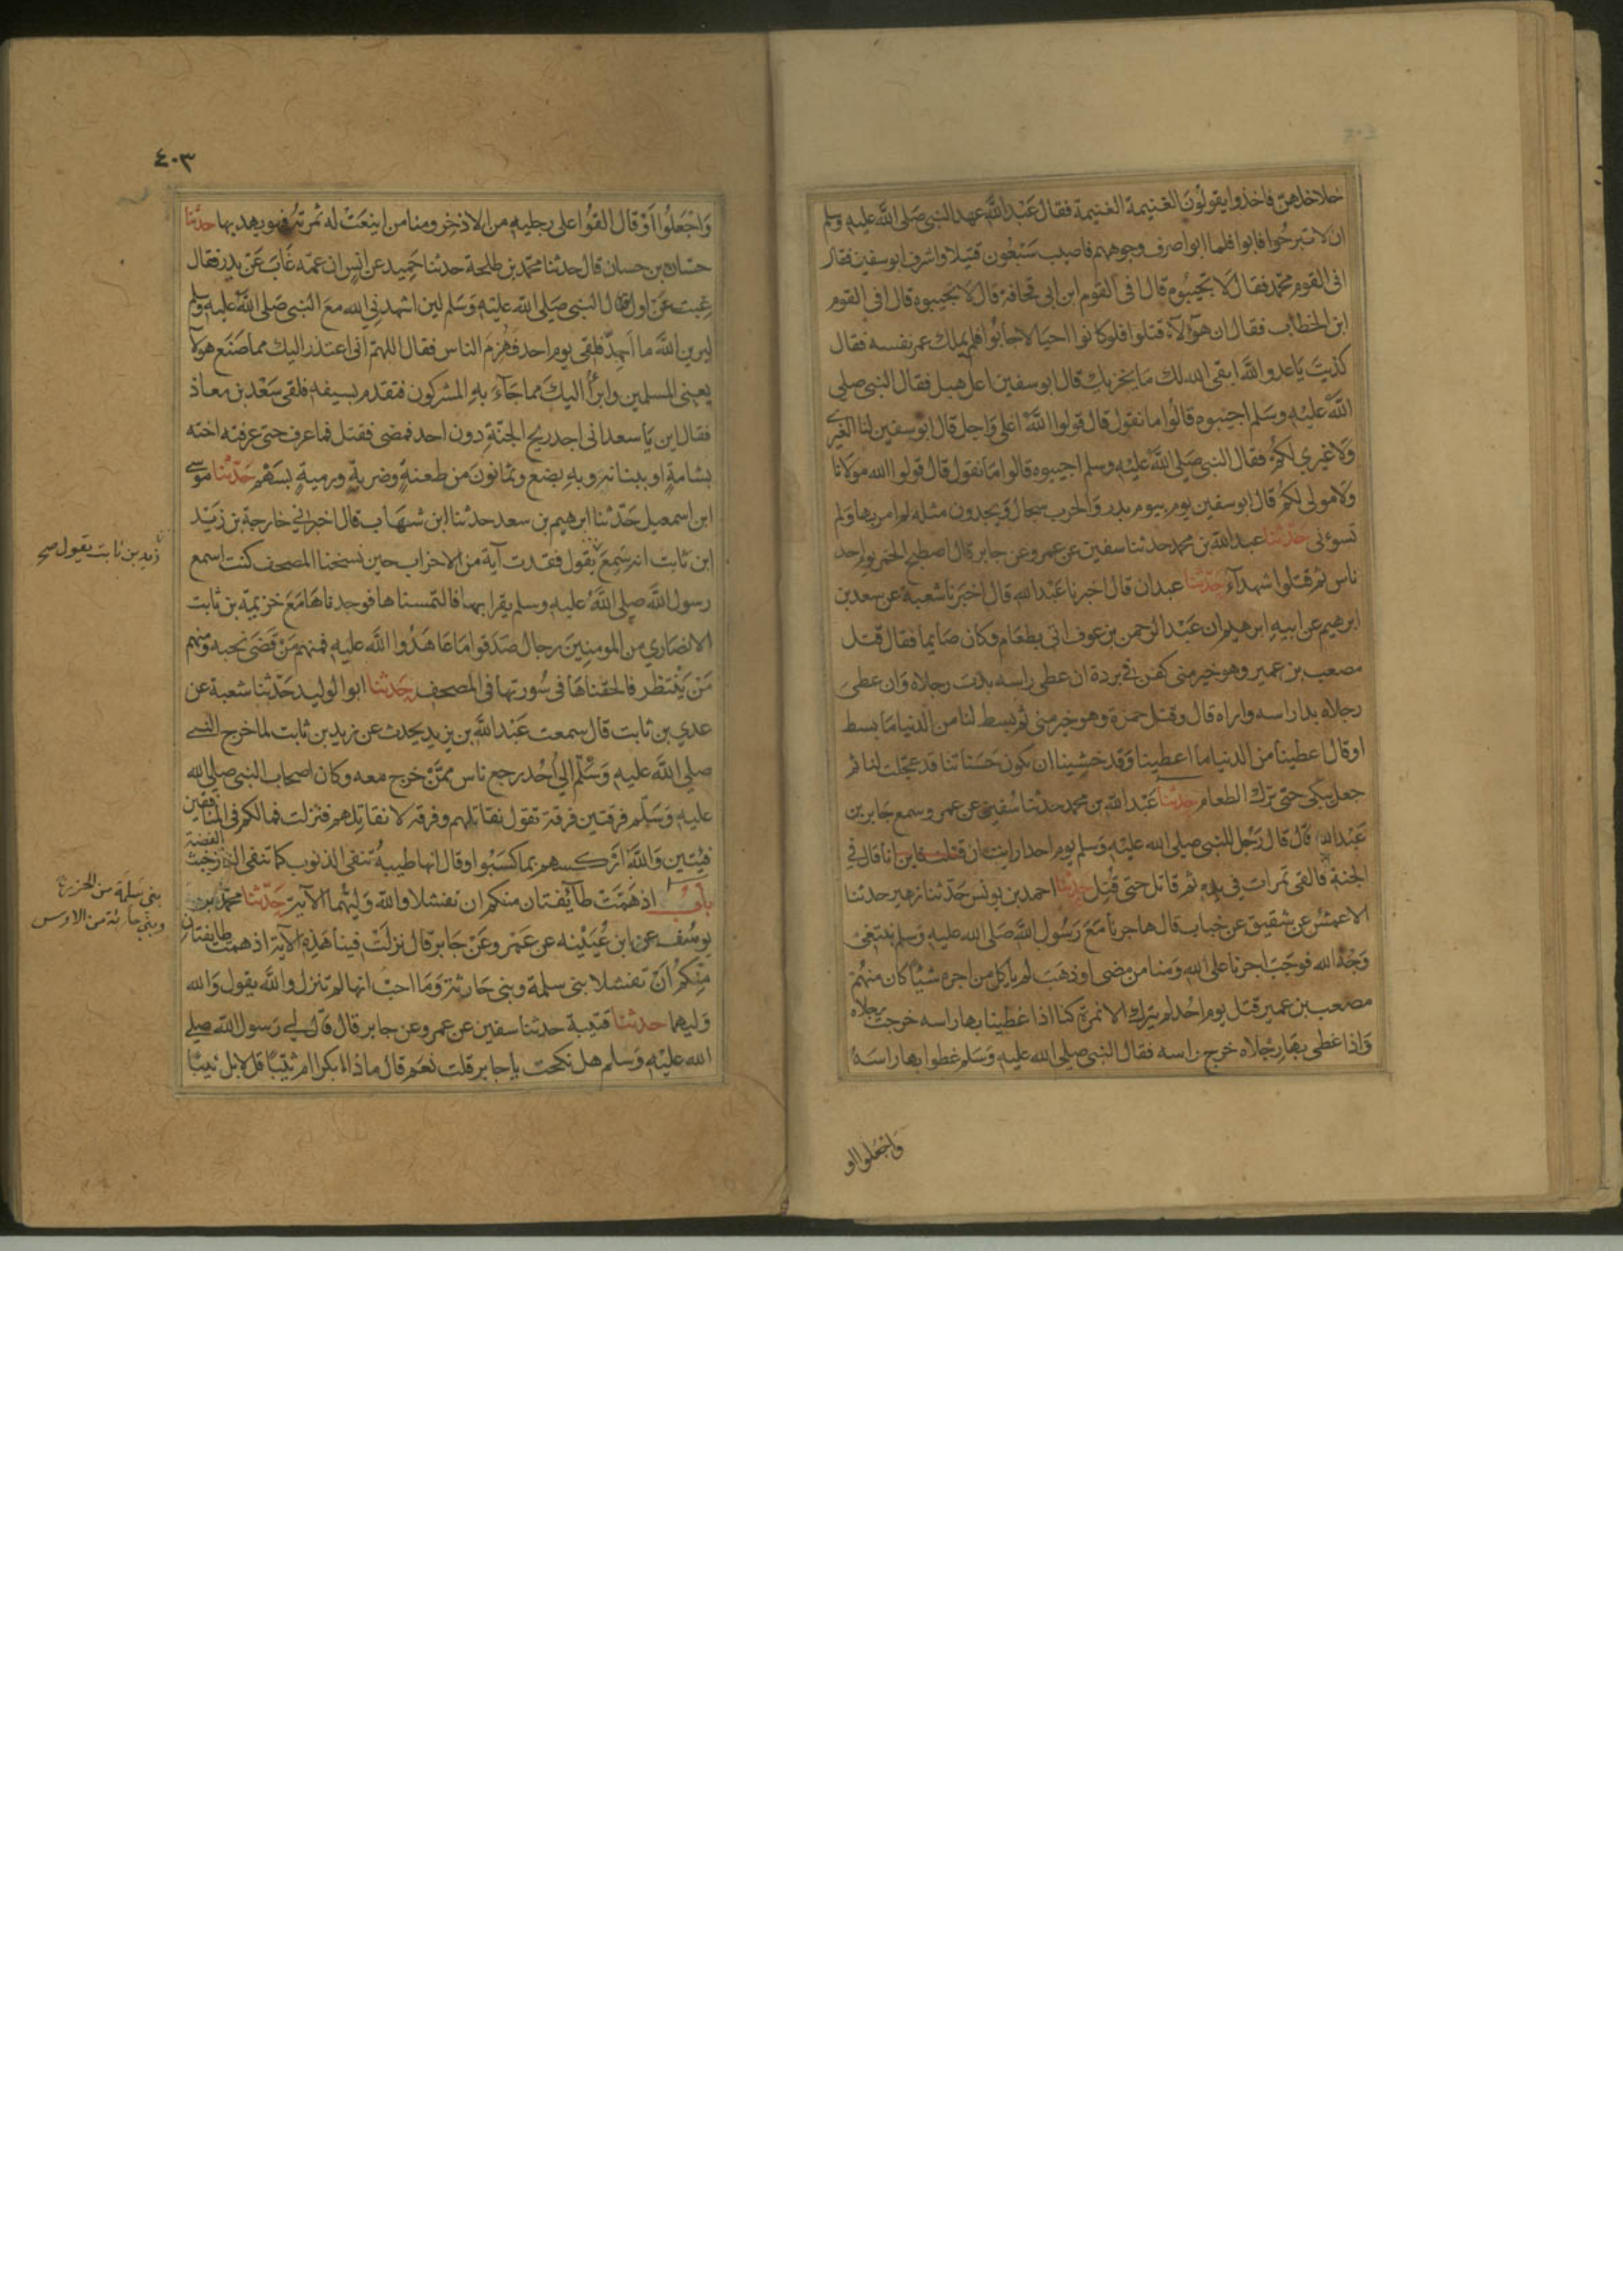 خلاخلهن فاخذوا يقولون الغنيمة الغنيمة فقال عبد الله عهد النبي صلى الله عليه وسلم
ان لا تبرحوا فابوا فلما ابوا صرف وجوههم فاصيب سبعون قتيلا واشرف ابو سفين فقال
افى القوم محمد فقال لا تجيبوه قال افى القوم ابن ابى قحافة قال لا تجيبوه قال افى القوم
ابن الخطاب فقال ان هؤلاء قتلوا فلو كانوا احيا لاجابوا فلم يملك عمر نفسه فقال
كذبت يا عدو الله ابقى الله لك ما يخزيك قال ابو سفين اعل هبل فقال النبي صلى
الله عليه وسلم اجيبوه قالوا ما نقول قال قولوا الله اعلى واجل قال ابو سفين لنا العزى
ولا عزى لكم فقال النبي صلى الله عليه وسلم اجيبوه قالوا ما نقول قال قولوا الله مولانا
ولا مولى لكم قال ابو سفين يوم بيوم بدر والحرب سجال وتجدون مثلة لم امر بها ولم
تسوءنى حدثنا عبد الله بن محمد حدثنا سفين عن عمرو عن جابر قال اصطبح الخمر يوم احد
ناس ثم قتلوا شهدآء حدثنا عبدان قال اخبرنا عبد الله قال اخبرنا شعبة عن سعد بن
ابرهيم عن ابيه ابرهيم ان عبد الرحمن بن عوف اتى بطعام وكان صايما فقال قتل
مصعب بن عمير وهو خير منى كفن فى بردة ان غطى راسه بدت رجلاه وان غطى
رجلاه بدا راسه واراه قال وقتل حمزة وهو خير منى ثم بسط لنا من الدنيا ما بسط
او قال اعطينا من الدنيا ما اعطينا وقد خشينا ان تكون حسناتنا قد عجلت لنا ثم
جعل يبكى حتى ترك الطعام حدثنا عبد الله بن محمد حدثنا سفين عن عمرو سمع جابر بن
عبد الله قال قال رجل للنبي صلى الله عليه وسلم يوم احد ارايت ان قتلت فاين انا قال فى
الجنة فالقى تمرات فى يده ثم قاتل حتى قتل حدثنا احمد بن يونس حدثنا زهير حدثنا
الاعمش عن شقيق عن خباب قال هاجرنا مع رسول الله صلى الله عليه وسلم نبتغى
وجه الله فوجب اجرنا على الله ومنا من مضى او ذهب لم ياكل من اجره شيئا كان منهم
مصعب بن عمير قتل يوم احد لم يترك الا نمرة كنا اذا غطينا بها راسه خرجت رجلاه
واذا غطى بها رجلاه خرج راسه فقال النبي صلى الله عليه وسلم غطوا بها راسه
واجعلوا او
٤٠٣
واجعلوا او قال القوا على رجليه من الاذخر ومنا من اينعت له ثمرته فهو يهدبها حدثنا
حسان بن حسان قال حدثنا محمد بن طلحة حدثنا حميد عن انس ان عمه غاب عن بدر فقال
غبت عن اول قتال النبي صلى الله عليه وسلم لين اشهدني الله مع النبي صلى الله عليه وسلم
ليرين الله ما اجد فلقى يوم احد فهزم الناس فقال اللهم انى اعتذر اليك مما صنع هولآ
يعنى المسلمين وابرأ اليك مما جآء به المشركون فتقدم بسيفه فلقى سعد بن معاذ
فقال اين يا سعد انى اجد ريح الجنة دون احد فمضى فقتل فما عرف حتى عرفته اخته
بشامة او ببنانه وبه بضع وثمانون من طعنة وضربة ورمية بسهم حدثنا موسى
ابن اسمعيل حدثنا ابرهيم بن سعد حدثنا ابن شهاب قال اخبرني خارجة بن زيد
ابن ثابت انه سمع يقول فقدت آية من الاحزاب حين نسخنا المصحف كنت اسمع
زيد بن ثابت يقول صح
رسول الله صلى الله عليه وسلم يقرا بها فالتمسناها فوجدناها مع خزيمة بن ثابت
الانصاري من المومنين رجال صدقوا ما عاهدوا الله عليه فمنهم من قضى نحبه ومنهم
من ينتظر فالحقناها فى سورتها فى المصحف حدثنا ابو الوليد حدثنا شعبة عن
عدي بن ثابت قال سمعت عبد الله بن يزيد يحدث عن زيد بن ثابت لما خرج النبي
صلى الله عليه وسلم الى احد رجع ناس ممن خرج معه وكان اصحاب النبي صلى الله
عليه وسلم فرقتين فرقة تقول نقاتلهم وفرقة لا نقاتلهم فنزلت فمالكم فى المنافقين
فيتين والله اركسهم بما كسبوا وقال انها طيبة تنفى الذنوب كما تنفى النار خبث الفضة
باب اذ همت طآئفتان منكم ان تفشلا والله وليهما الآية حدثنا محمد بن
بنى سلمة من الخزرج
وبنى حارثة من الاوس
يوسف عن ابن عيينه عن عمرو عن جابر قال نزلت فينا هذه الآية اذ همت طايفتان
منكم ان تفشلا بنى سلمة وبنى حارثة وما احب انها لم تنزل والله يقول والله
وليهما حدثنا قتيبة حدثنا سفين عن عمرو عن جابر قال قال لي رسول الله صلى
الله عليه وسلم هل نكحت يا جابر قلت نعم قال ماذا ابكرا ام ثيبا قل لا بل ثيبا